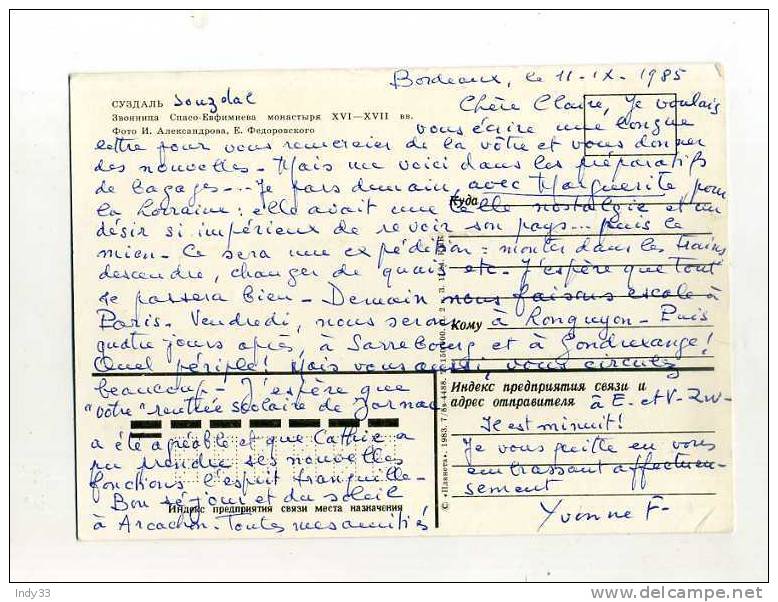 Bordeaux, le 11-IX-1985
СУЗДАЛЬ Souzdal
Звонница Спасо-Евфимиева монастыря XVI—XVII вв.
Фото И. Александрова, Е. Федоровского
Chère Claire, Je voulais
vous écrire une longue
lettre pour vous remercier de la vôtre et vous donner
des nouvelles - Mais me voici dans les préparatifs
de bagages... Je pars demain, avec Marguerite pour
la Lorraine : elle avait une telle nostalgie et un
désir si impérieux de revoir son pays... puis le
mien - Ce sera une expédition : monter dans les trains
descendre, changer de quai, etc - J'espère que tout
se passera bien - Demain nous faisons escale à
Paris - Vendredi, nous serons à Longuyon - Puis
quatre jours après, à Sarrebourg et à Gondrexange !
Quel périple ! Mais vous aussi, vous circulez
beaucoup - J'espère que
"votre" rentrée scolaire de Jarnac
a été agréable et que Cathie a
pu prendre ses nouvelles
fonctions l'esprit tranquille -
Bon séjour et du soleil
à Arcachon - Toutes mes amitiés
à E. et V. Zw-
Il est minuit !
Je vous quitte en vous
embrassant affectueu-
sement
Yvonne F-
Куда
Кому
Индекс предприятия связи и
адрес отправителя
Индекс предприятия связи места назначения
© «Планета», 1983. 7/8з-4488. Т. 150000. Ц. 2
Indy33
www.delcampe.net